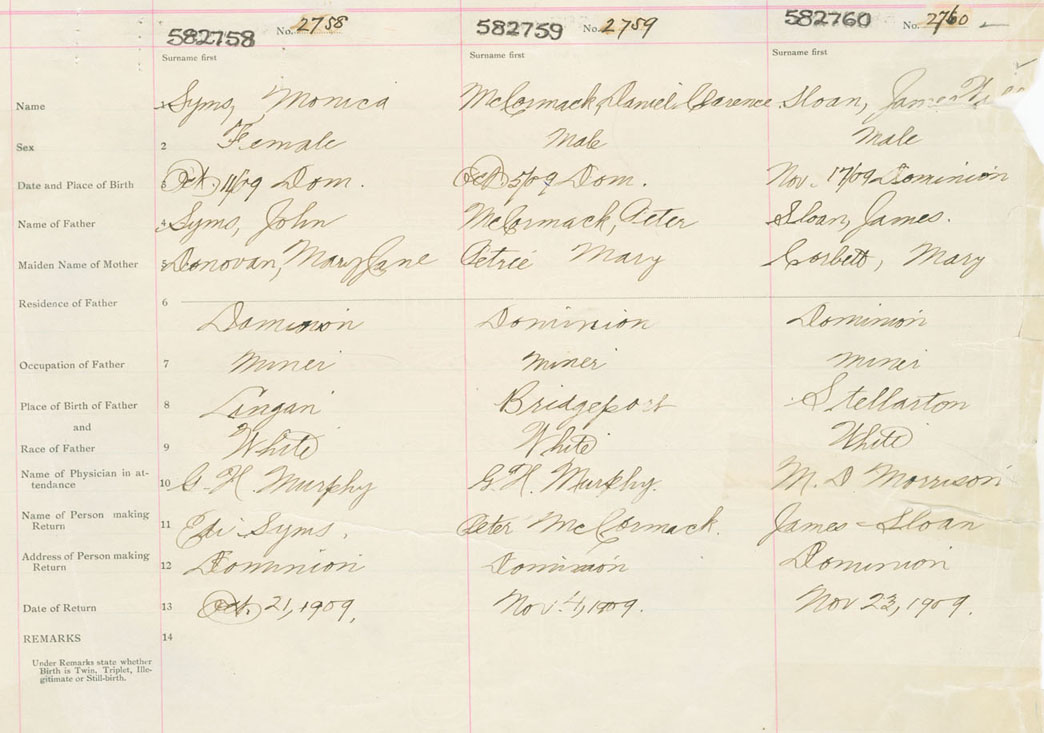 582758 No. 2758 582759 No. 2759 582760 No. 2760
Surname first Surname first Surname first
Name 1 Syms, Monica McCormack, Daniel Clarence Sloan, James
Sex 2 Female Male Male
Date and Place of Birth 3 Oct. 11/09 Dom. Oct 5/09 Dom. Nov. 17/09 Dominion
Name of Father 4 Syms, John McCormack, Peter Sloan, James.
Maiden Name of Mother 5 Donovan, Mary Jane Petrie Mary Corbett, Mary
Residence of Father 6
Dominion Dominion Dominion
Occupation of Father 7 Miner Miner Miner
Place of Birth of Father 8 Lingan Bridgeport Stellarton
and
Race of Father 9 White White White
Name of Physician in at-
tendance 10 G. H. Murphy G. H. Murphy. M. D. Morrison
Name of Person making
Return 11 Syms. Peter McCormack. James Sloan
Address of Person making
Return 12 Dominion Dominion Dominion
Date of Return 13 Oct. 21, 1909, Nov. 4, 1909. Nov 23, 1909.
REMARKS 14
Under Remarks state whether
Birth is Twin, Triplet, Ille-
gitimate or Still-birth.